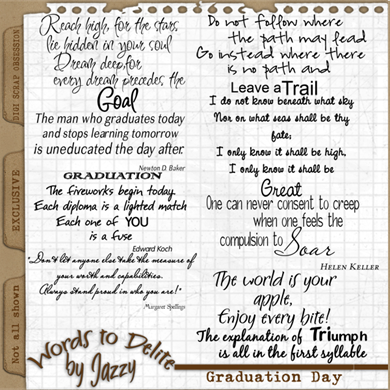 Reach high, for the stars
lie hidden in your soul
Dream deep, for
every dream precedes the
Goal
The man who graduates today
and stops learning tomorrow
is uneducated the day after.
Newton D. Baker
GRADUATION
The fireworks begin today.
Each diploma is a lighted match
Each one of YOU
is a fuse
Edward Koch
"Don't let anyone else take the measure of
your worth and capabilities.
Always stand proud in who you are!"
-Margaret Spellings
Do not follow where
the path may lead
Go instead where there
is no path and
Leave a Trail
I do not know beneath what sky
Nor on what seas shall be thy
fate;
I only know it shall be high,
I only know it shall be
Great
One can never consent to creep
when one feels the
compulsion to Soar
HELEN KELLER
The world is your
apple,
Enjoy every bite!
The explanation of Triumph
is all in the first syllable
DIGI SCRAP OBSESSION
EXCLUSIVE
Not all shown
Words to Delite
by Jazzy
Graduation Day